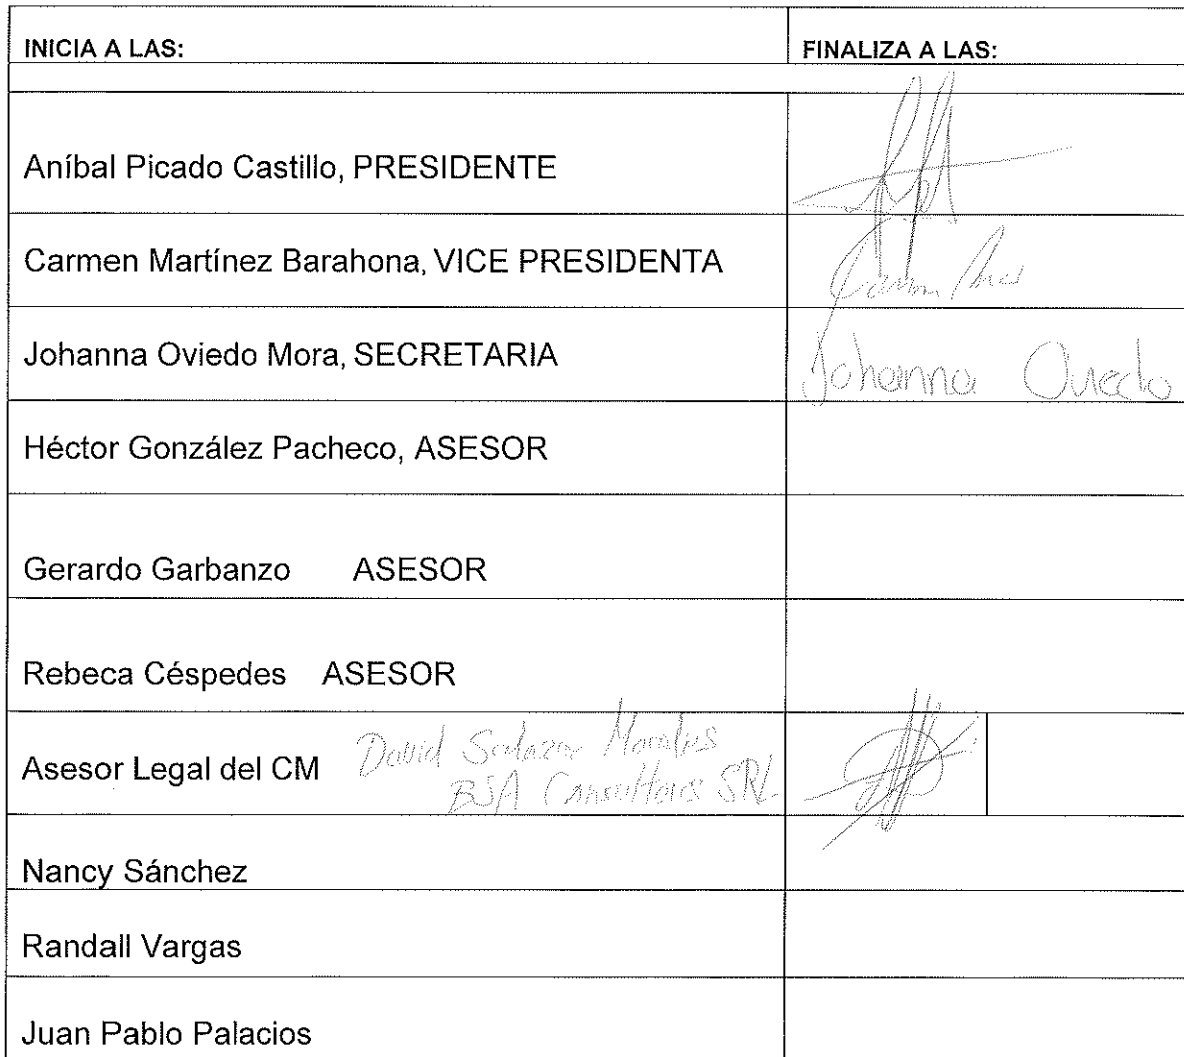 INICIA A LAS: FINALIZA A LAS:
Aníbal Picado Castillo, PRESIDENTE
Carmen Martínez Barahona, VICE PRESIDENTA
Johanna Oviedo Mora, SECRETARIA Johanna Oviedo
Héctor González Pacheco, ASESOR
Gerardo Garbanzo ASESOR
Rebeca Céspedes ASESOR
Asesor Legal del CM David Salazar Morales
BSA Consultores SRL
Nancy Sánchez
Randall Vargas
Juan Pablo Palacios